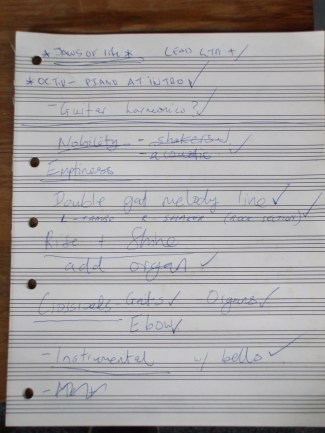 * JAWS OF LIFE LEAD GTR
* OCTIV- PIANO AT INTRO ✓
- Guitar harmonics? ✓
Nobility - shakers ✓
- acoustic ✓
Emptiness
Double gat melody line ✓
L - R - SHAKER ✓
Rise + Shine
add organ ✓
- Gats ✓ Organs ✓
Ebow ✓
- Instrumental w/ bells ✓